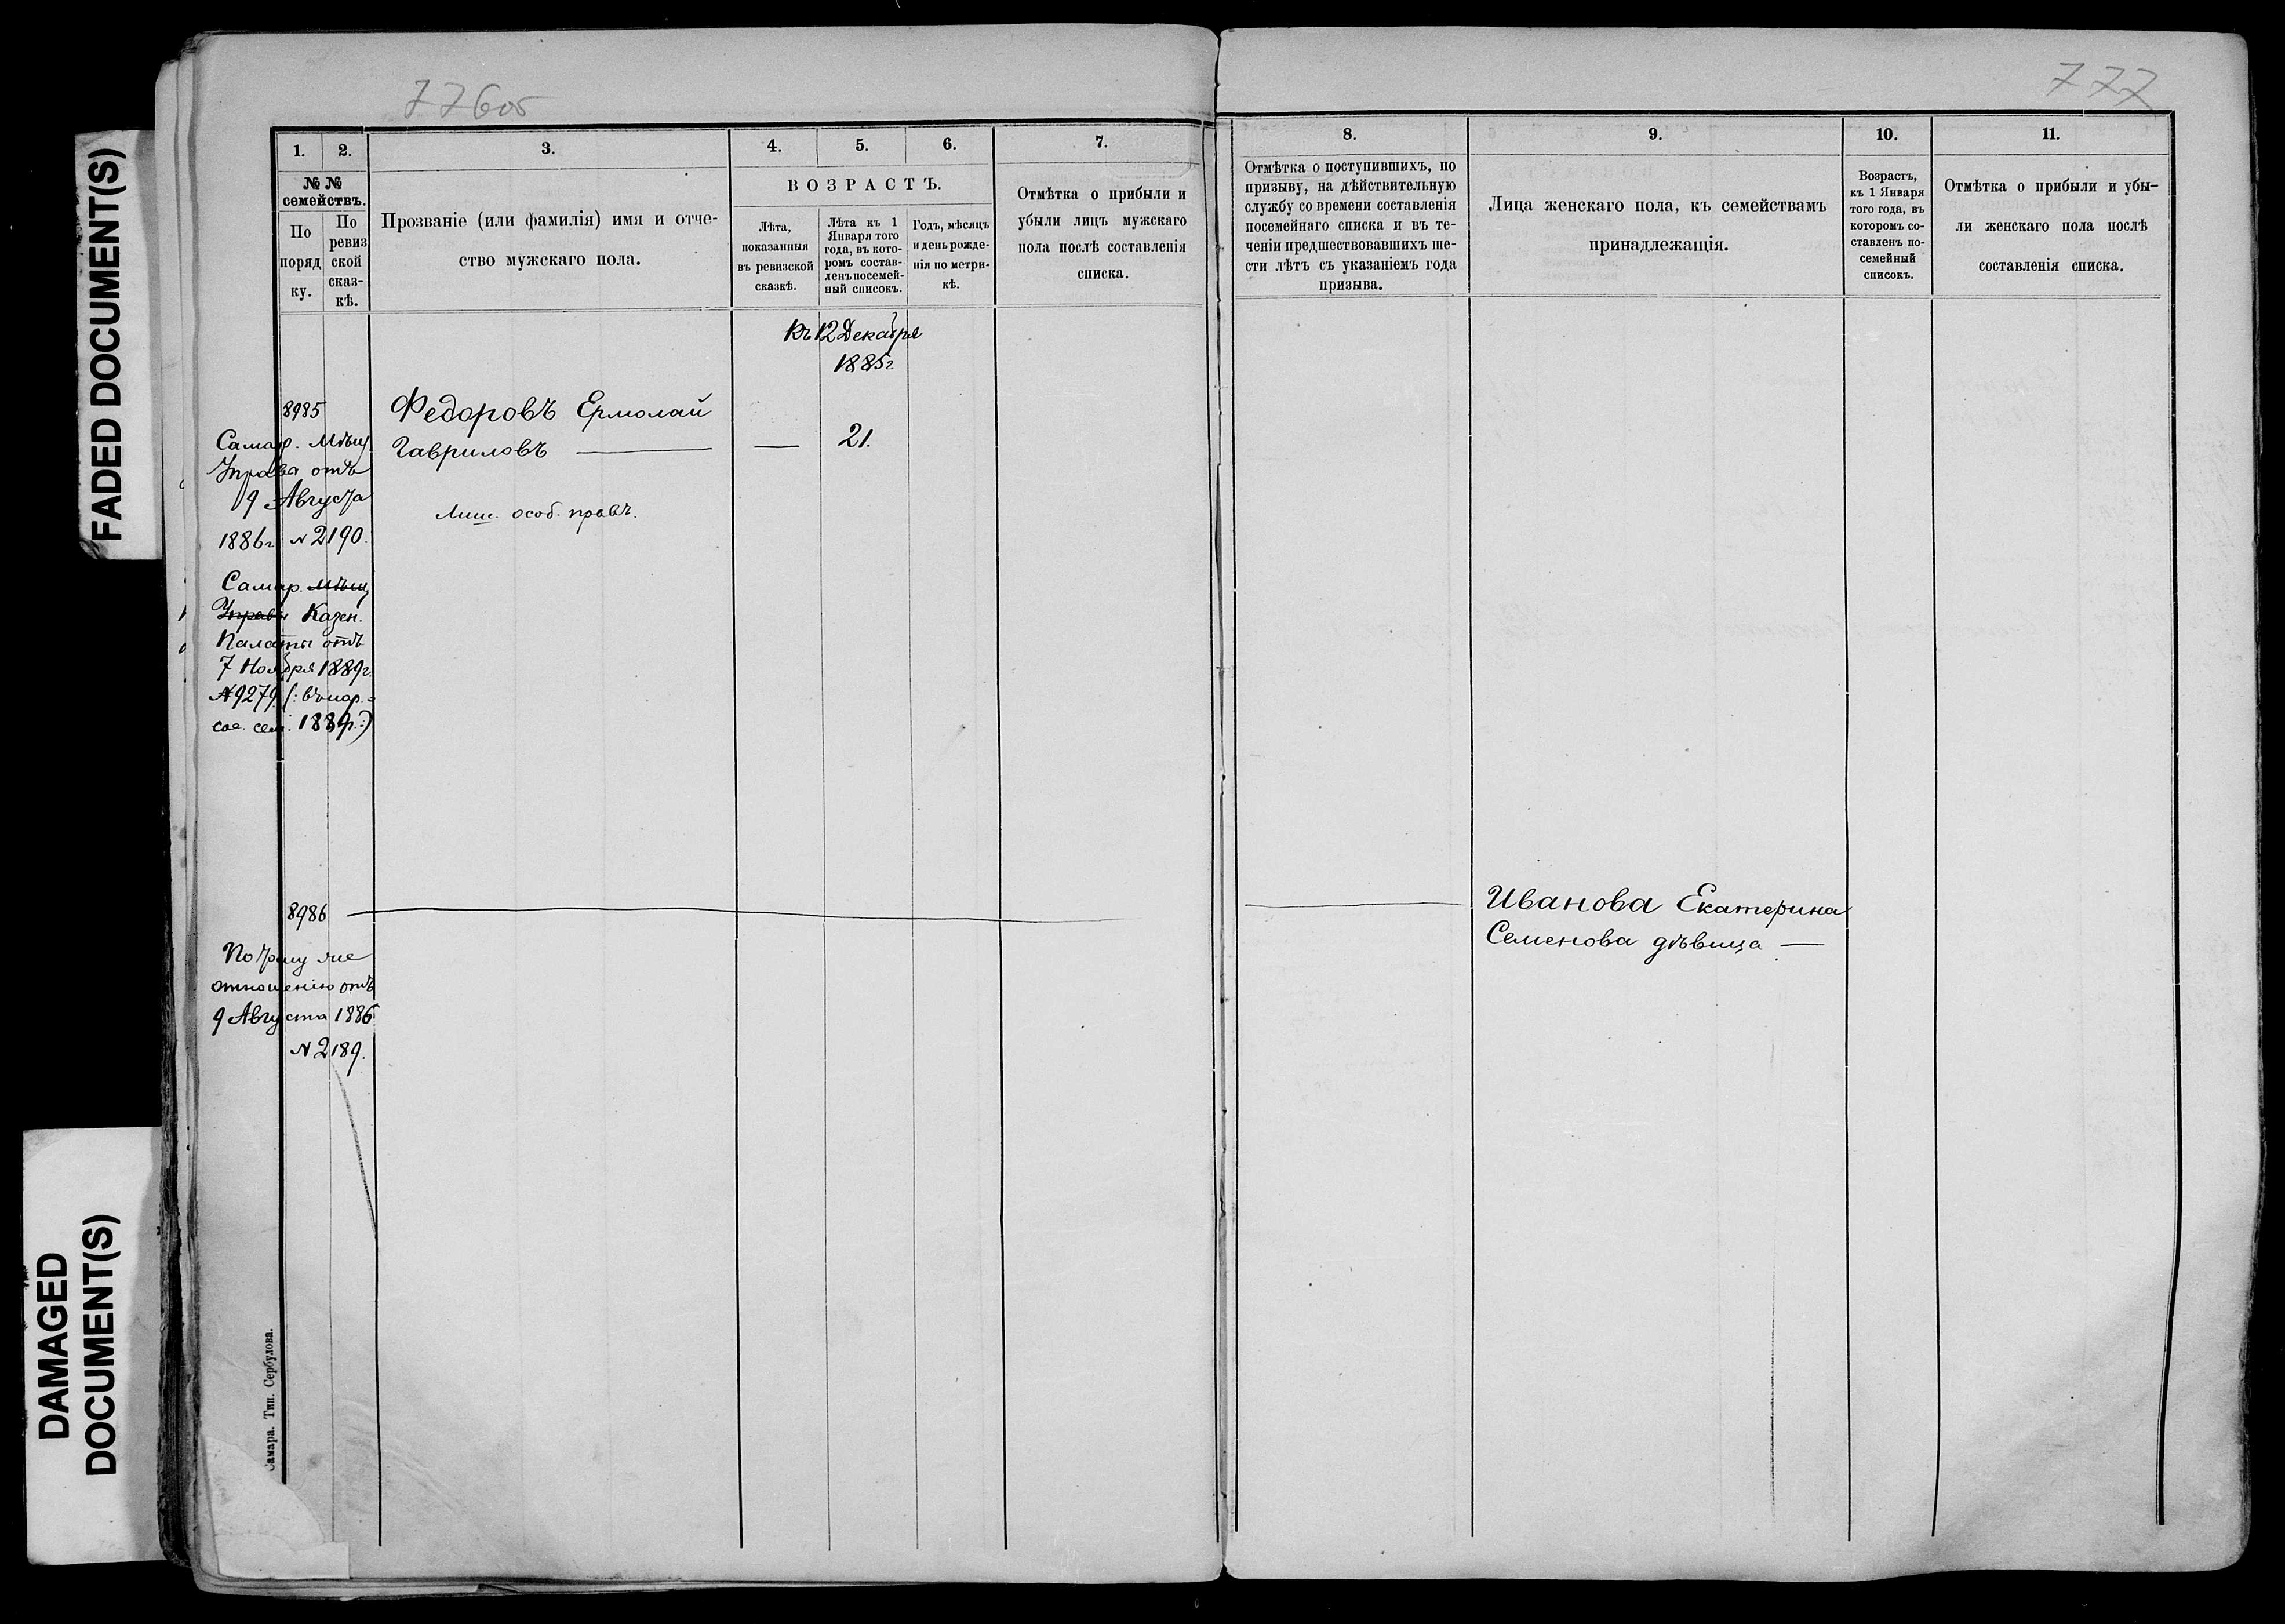 FADED DOCUMENT(S)
DAMAGED
DOCUMENT(S)
776об
1. 2. 3. 4. 5. 6. 7.
№ №
семействъ.
По
поряд
ку.
По
ревиз
ской
сказ-
кѣ.
Прозваніе (или фамилія) имя и отче-
ство мужскаго пола.
ВОЗРАСТЪ.
Лѣта,
показанныя
въ ревизской
сказкѣ.
Лѣта къ 1
Января того
года, въ кото-
ромъ состав-
ленъ посемей-
ный списокъ.
Годъ, мѣсяцъ
и день рожде-
нія по метри-
кѣ.
Отмѣтка о прибыли и
убыли лицъ мужскаго
пола послѣ составленія
списка.
Къ 12 Декабря
1885г
8985
Федоровъ Ермолай
Гавриловъ — — 21.
Лиш. особ. правъ.
Самар. Мѣщ.
Управа отъ
9 Августа
1886г №2190.
Самар. Мѣщ
Управы Казен.
Палаты отъ
7 Ноября 1889г.
№9279
8986
По
отношенію отъ
9 Августа 1886
№2189.
Самара. Тип. Сербулова.
777
8. 9. 10. 11.
Отмѣтка о поступившихъ, по
призыву, на дѣйствительную
службу со времени составленія
посемейнаго списка и въ те-
ченіи предшествовавшихъ ше-
сти лѣтъ съ указаніемъ года
призыва.
Лица женскаго пола, къ семействамъ
принадлежащія.
Возрастъ,
къ 1 Января
того года, въ
которомъ со-
ставленъ по-
семейный
списокъ.
Отмѣтка о прибыли и убы-
ли женскаго пола послѣ
составленія списка.
Иванова Екатерина
Семенова дѣвица —